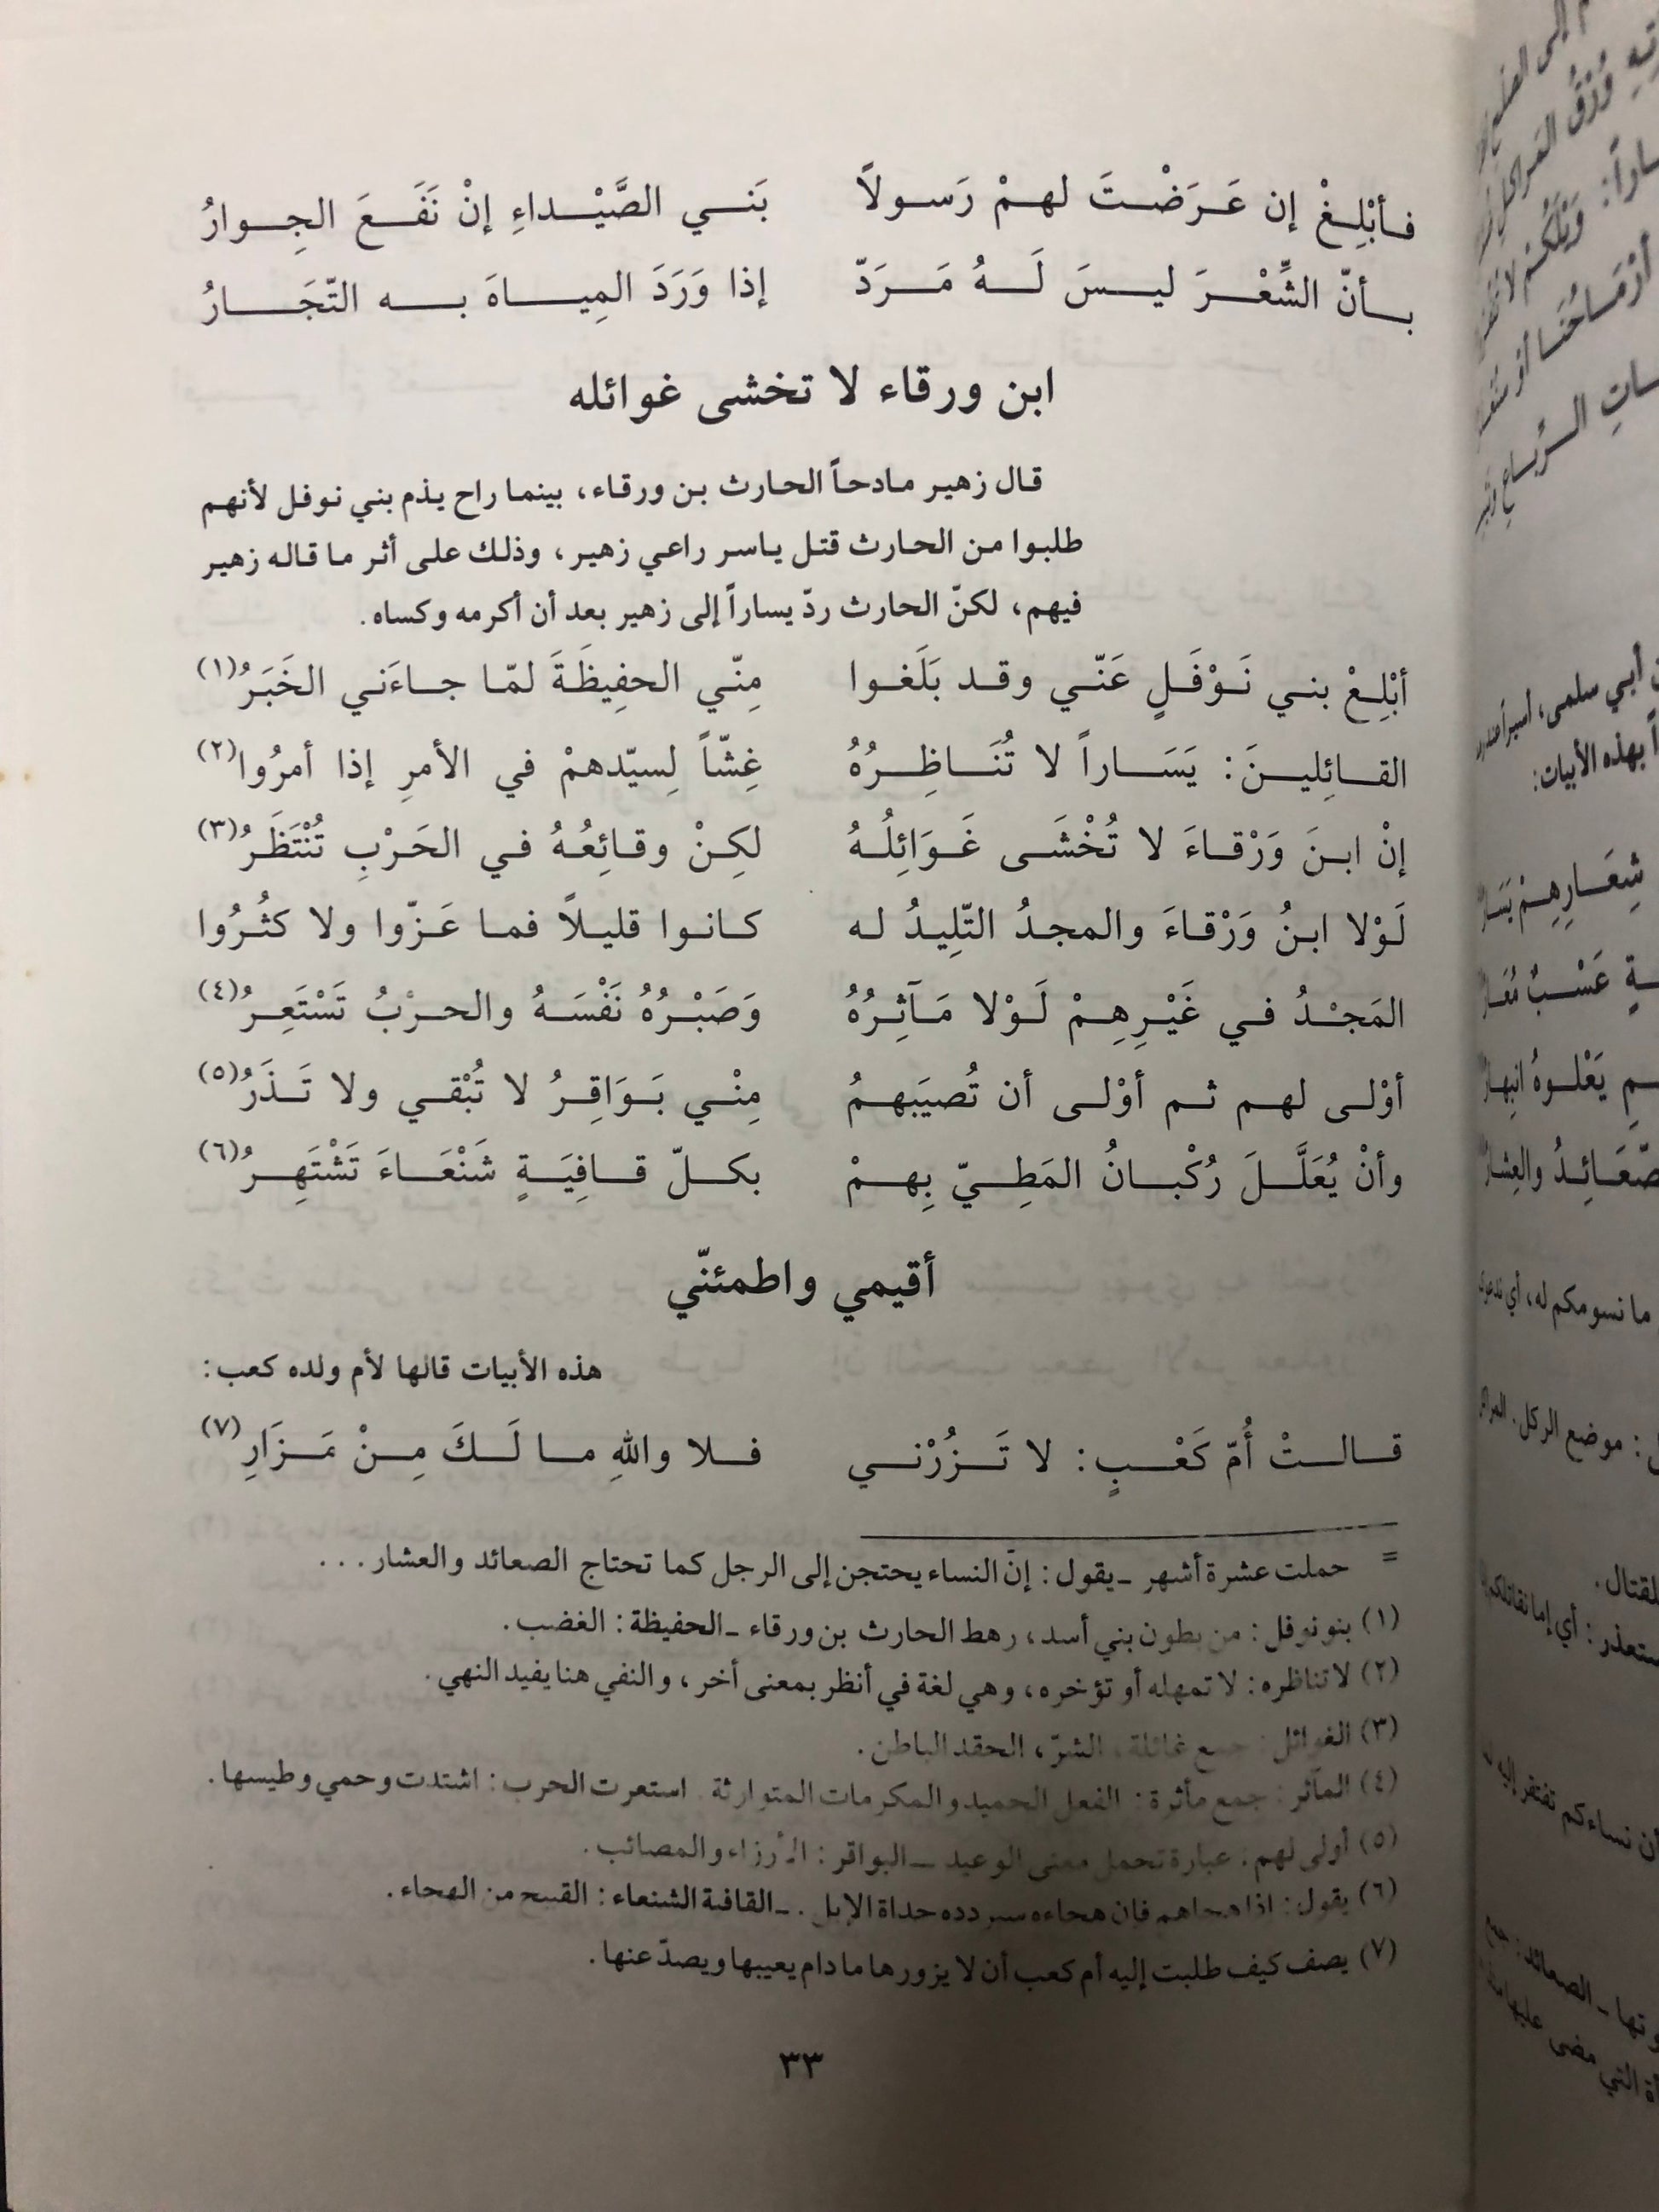 فأبْلِغْ إن عَرَضْتَ لهمْ رَسولاً بَني الصَّيْداءِ إنْ نَفَعَ الجِوارُ
بأنّ الشِّعْرَ ليسَ لَهُ مَرَدّ إذا وَرَدَ المِياهَ به التّجَارُ
ابن ورقاء لا تخشى غوائله
قال زهير مادحاً الحارث بن ورقاء، بينما راح يذم بني نوفل لأنهم
طلبوا من الحارث قتل ياسر راعي زهير، وذلك على أثر ما قاله زهير
فيهم، لكنّ الحارث ردّ يساراً إلى زهير بعد أن أكرمه وكساه.
أبْلِغْ بني نَوْفَلٍ عَنّي وقد بَلَغوا مِنّي الحفِيظَةَ لمّا جاءَني الخَبَرُ(١)
القائِلينَ: يَسَاراً لا تُنَاظِرُهُ غِشّاً لِسيّدهمْ في الأمرِ إذا أمرُوا(٢)
إنْ ابنَ وَرْقاءَ لا تُخْشَى غَوَائِلُهُ لكِنْ وقائِعُهُ في الحَرْبِ تُنْتَظَرُ(٣)
لَوْلا ابنُ وَرْقاءَ والمجدُ التّلِيدُ له كانوا قليلاً فما عَزّوا ولا كثُرُوا
المَجْدُ في غَيْرِهِمْ لَوْلا مَآثِرُهُ وَصَبْرُهُ نَفْسَهُ والحرْبُ تَسْتَعِرُ(٤)
أوْلى لهم ثم أوْلى أن تُصيَبهمُ مِنْي بَوَاقِرُ لا تُبْقي ولا تَذَرُ(٥)
وأنْ يُعَلَّلَ رُكْبانُ المَطِيّ بِهمْ بكلّ قافِيَةٍ شَنْعَاءَ تَشْتَهِرُ(٦)
أقيمي واطمئنّي
هذه الأبيات قالها لأم ولده كعب:
قالتْ أُمّ كَعْبٍ: لا تَزُرْني فلا واللهِ ما لَكَ مِنْ مَزَارِ(٧)
= حملت عشرة أشهر ـ يقول: إنّ النساء يحتجن إلى الرجل كما تحتاج الصعائد والعشار...
(١) بنو نوفل: من بطون بني أسد، رهط الحارث بن ورقاء ـ الحفيظة: الغضب.
(٢) لا تناظره: لا تمهله أو تؤخره، وهي لغة في أنظر بمعنى أخر، والنفي هنا يفيد النهي.
(٣) الغوائل: جمع غائلة، الشرّ، الحقد الباطن.
(٤) المآثر: جمع مأثرة: الفعل الحميد والمكرمات المتوارثة. استعرت الحرب: اشتدت وحمي وطيسها.
(٥) أولى لهم: عبارة تحمل معنى الوعيد ـ البواقر: الأرزاء والمصائب.
(٦) يقول: إذا هجاهم فإن هجاءه سيردده حداة الإبل. ـ القافية الشنعاء: القبيح من الهجاء.
(٧) يصف كيف طلبت إليه أم كعب أن لا يزورها ما دام يعيبها ويصدّ عنها.
٣٣